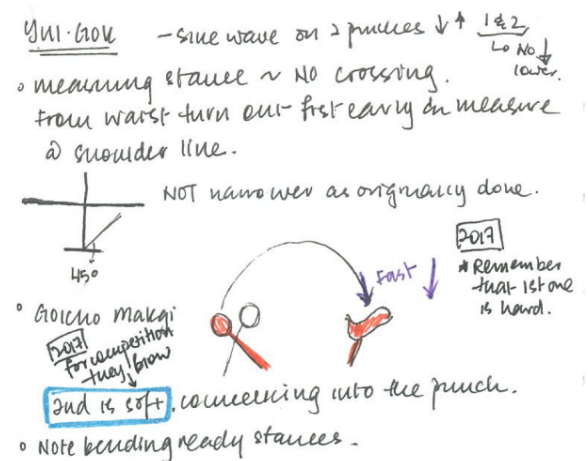 YUL·GOK - sine wave on 2 punches ↓ ↑ 1 & 2
↳ NO ↓
lower.
• measuring stance ~ NO crossing.
From waist turn out fist early in measure
@ shoulder line.
NOT narrower as originally done.
45°
2017
* Remember
that 1st one
is hard.
Fast
• Goicho Makgi
2017
for competition
they
2nd is soft, connecting into the punch.
• Note bending ready stances.